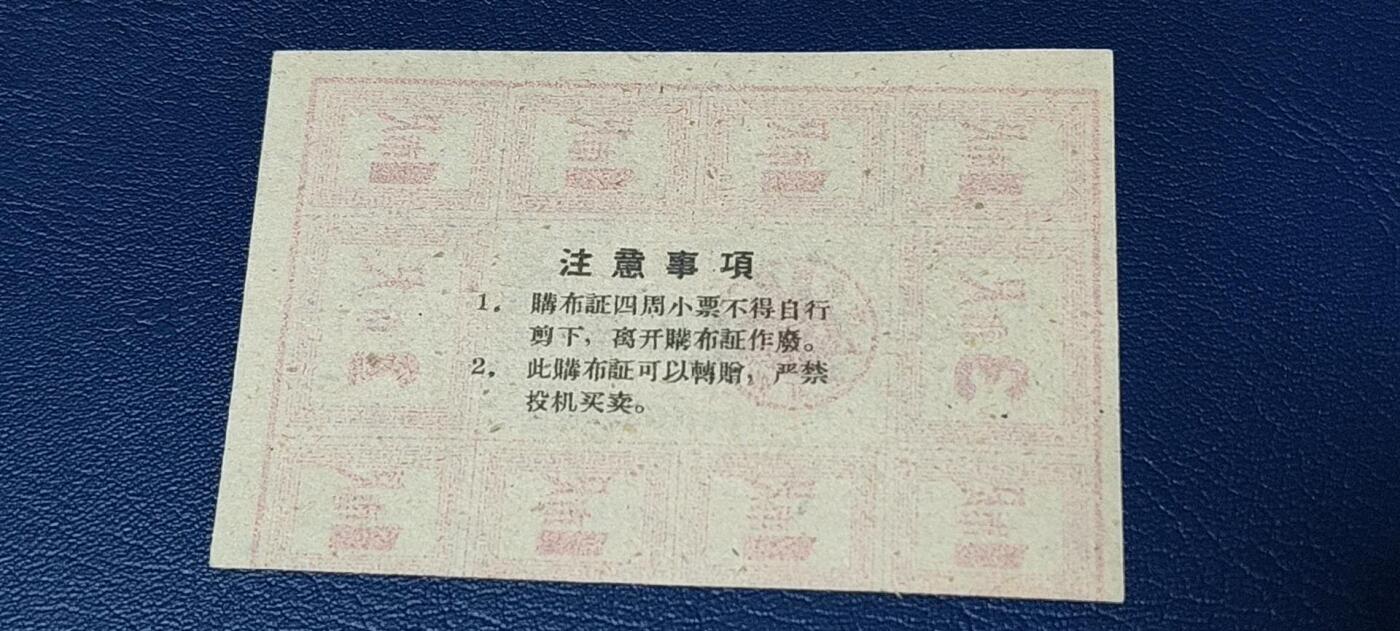 注意事項
1. 購布証四周小票不得自行
剪下，离开購布証作廢。
2. 此購布証可以轉贈，严禁
投机买卖。